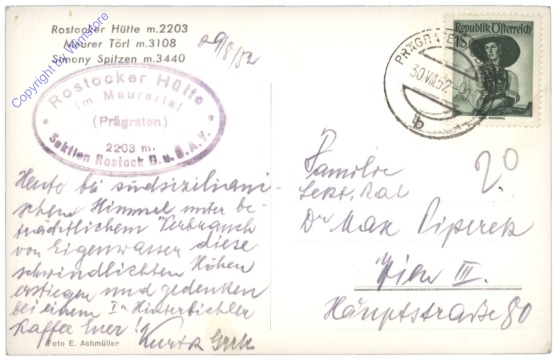 Rostocker Hütte m.2203
Maurer Törl m.3108
Simony Spitzen m.3440
29/8/52
Copyright by Wamstore
Rostocker Hütte
im Maurertal
(Prägraten)
2203 m.
Sektion Rostock D.u.Ö.A.V.
PRÄGRATEN
30.VIII.52
b
1S
Republik Österreich
20
Heute bei südsiziliani-
schem Himmel unter be-
trächtlichem Verbrauch
von Eigenwasser diese
schwindlichten Höhen
erstiegen und gedenken
bei einem Ia Hinterbichler
Kaffee Euer!
Kurt
Foto E. Achmüller
Familie
Sekt. Rat
Dr Max Piperek
Wien III.
Hauptstraße 80